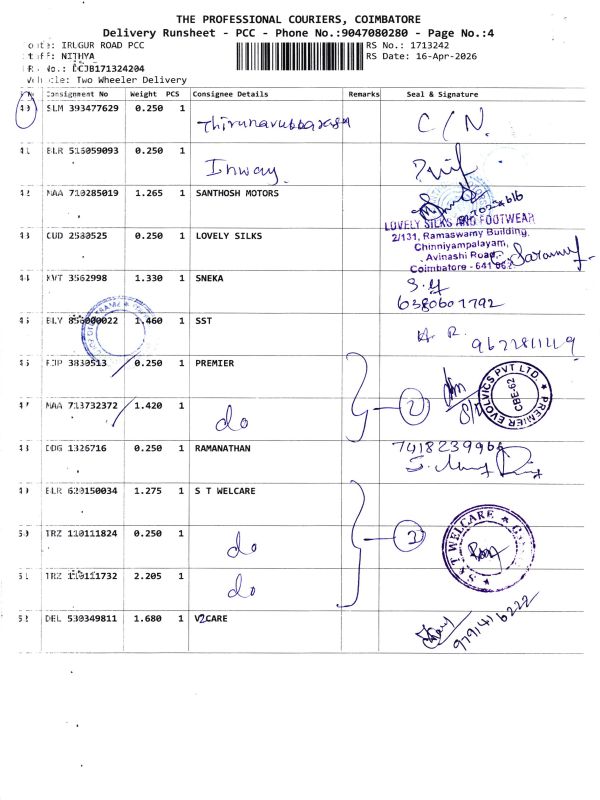 THE PROFESSIONAL COURIERS, COIMBATORE
Delivery Runsheet - PCC - Phone No.:9047080280 - Page No.:4
IRUGUR ROAD PCC
RS No.: 1713242
NITHYA
RS Date: 16-Apr-2026
No.: DCJB171324204
Two Wheeler Delivery
Consignment No Weight PCS Consignee Details Remarks Seal & Signature
SLM 393477629 0.250 1 C/N.
BLR 516059093 0.250 1 Inway
42 MAA 710285019 1.265 1 SANTHOSH MOTORS
43 CUD 2580525 0.250 1 LOVELY SILKS
LOVELY SILKS AND FOOTWEAR
2/131, Ramaswamy Building,
Chinniyampalayam,
Avinashi Road,
Coimbatore - 641 062
44 KVT 3562998 1.330 1 SNEKA
6380601792
45 1.460 1 SST
46 PJP 3830513 0.250 1 PREMIER
PREMIER EVOLVICS PVT LTD.
CBE-62
47 MAA 713732372 1.420 1 do 2
48 DDG 1326716 0.250 1 RAMANATHAN
49 BLR 620150034 1.275 1 S T WELCARE
S & T WELCARE
50 TRZ 110111824 0.250 1 do
51 TRZ 110111732 2.205 1 do
52 DEL 530349811 1.680 1 V2CARE
9791416222